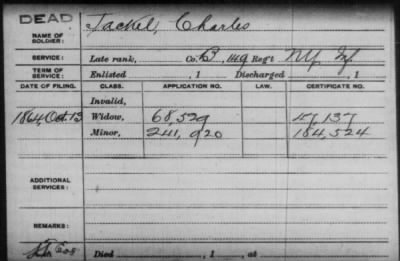 DEAD
NAME OF SOLDIER: Jackel, Charles
SERVICE: Late rank, Co. B, 149 Reg't N.Y. Inf.
TERM OF SERVICE: Enlisted , 1 Discharged , 1
DATE OF FILING. CLASS. APPLICATION NO. LAW. CERTIFICATE NO.
Invalid,
1864, Oct. 13 Widow, 68,529 47,137
Minor, 241,920 184,524
ADDITIONAL SERVICES:
REMARKS:
Died , 1 , at